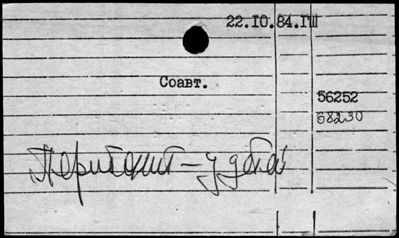 22.10.84.ГШ
Соавт.
56252
68230
Перитонит – у детей